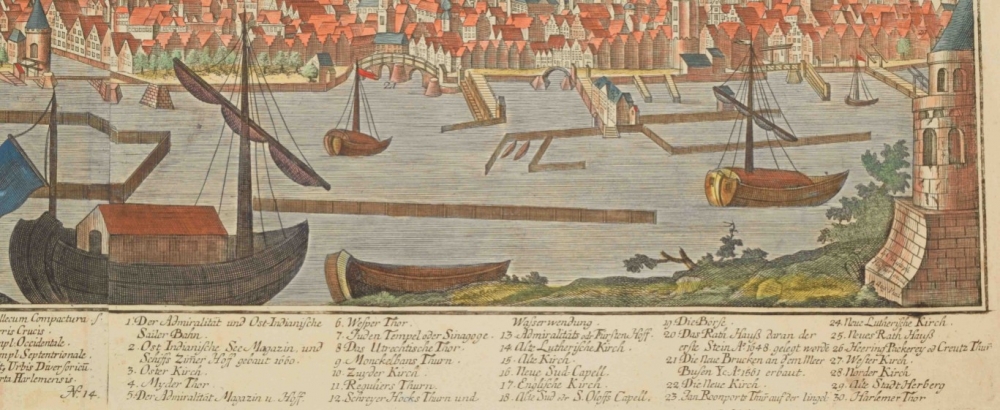 21
llecum Compactura s.
eris Crucis.
mpl. Occidentale.
mpl. Septentrionale.
Urbis Diversoricu
rta Harlemensis.
N. 14.
1. Der Admiralität und Ost-Indianische
Sailer Bahn.
2. Ost Indianische See Magazin, und
Schiffs Zimer Hoff gebaut 1660.
3. Oster Kirch.
4. Myder Thor.
5. Der Admiralität Magazin u. Hoff.
6. Wesper Thor.
7. Juden Tempel oder Sinagoge.
8. Das Utrechtische Thor.
9. Monckelbans Thurn.
10. Zuyder Kirch.
11. Reguliers Thurn.
12. Schreyer Hocke Thurn und
Wasserwendung.
13. Admiralitäts od. Fursten Hoff.
14. Alt Lutherische Kirch.
15. Alte Kirch.
16. Neue Sud-Capell.
17. Englische Kirch.
18. Alte Sud od. S. Oloffs Capell.
19. Die Börse.
20. Das Rath Hauß daran der
erste Stein Aº 1648 gelegt worde
21. Die Neue Brucken an dem Meer
Busen Y. Aº 1661 erbaut.
22. Die Neue Kirch.
23. Jan Roonports Thur auf der Singel.
24. Neue Lutherische Kirch.
25. Neues Rath Hauß
26. Heering Packerey od Creutz Thur
27. Wester Kirch.
28. Norder Kirch.
29. Alte Stadt Herberg
30. Harlemer Thor